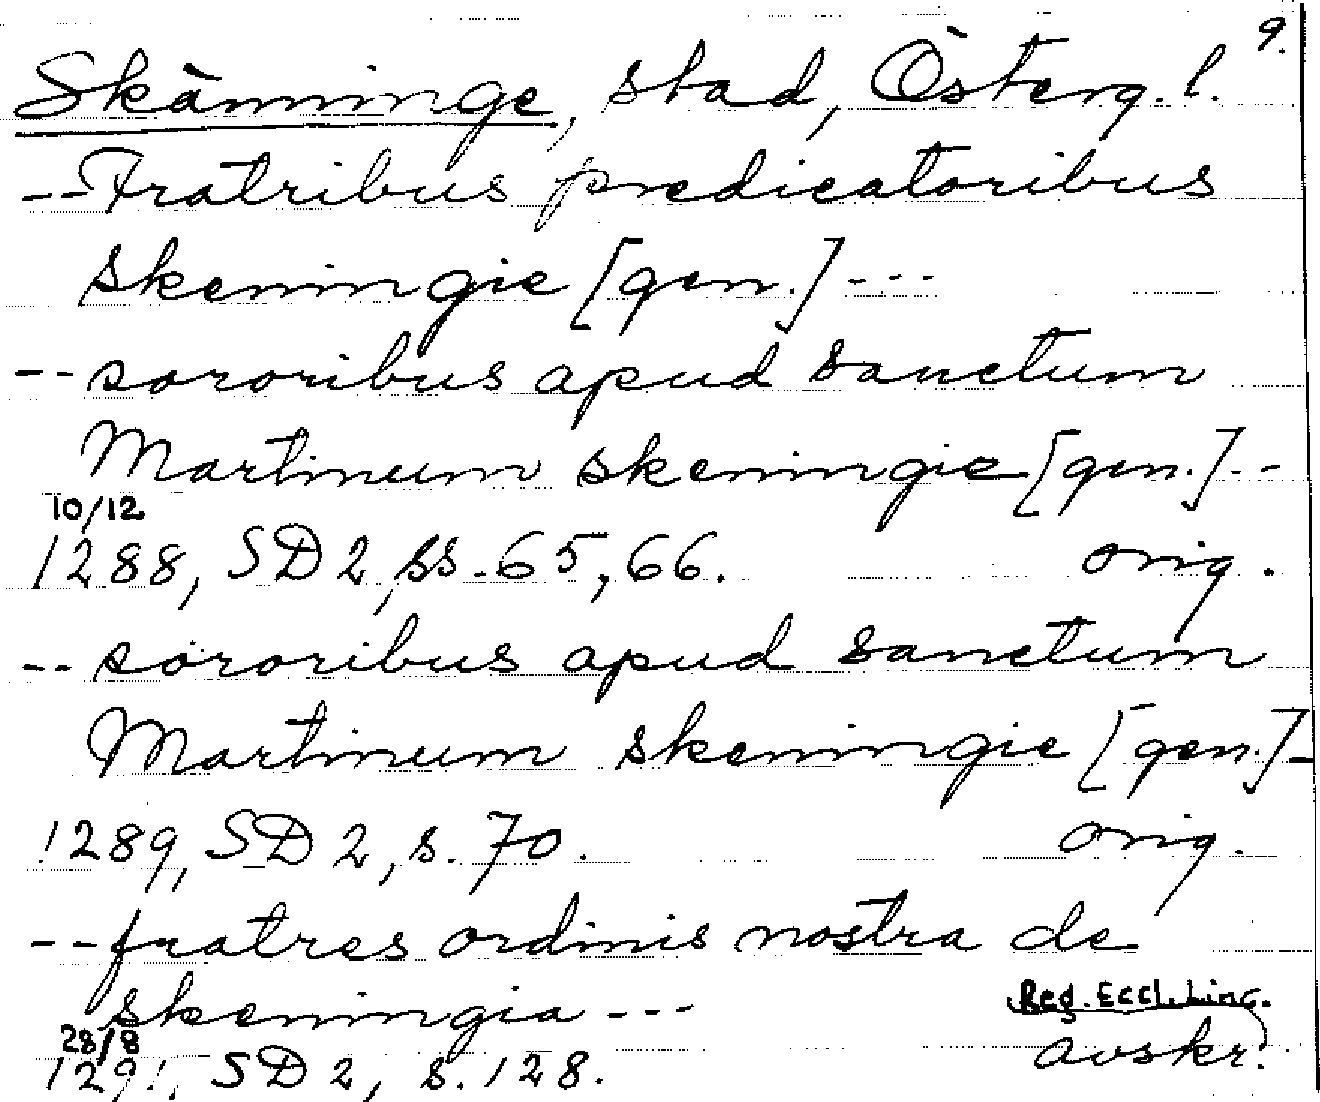 9.
Skänninge, stad, Österg. l.
--Fratribus predicatoribus
skeningie [gen.]---
--sororibus apud sanctum
Martinum skeningie [gen.]--
10/12
1288, SD 2, ss. 65, 66. orig.
-- sororibus apud sanctum
Martinum skeningie [gen.]-
1289, SD 2, s. 70. orig.
--fratres ordinis nostra de
skeningia --- Reg. Eccl. Linc.
28/8
1291, SD 2, s. 128. avskr.